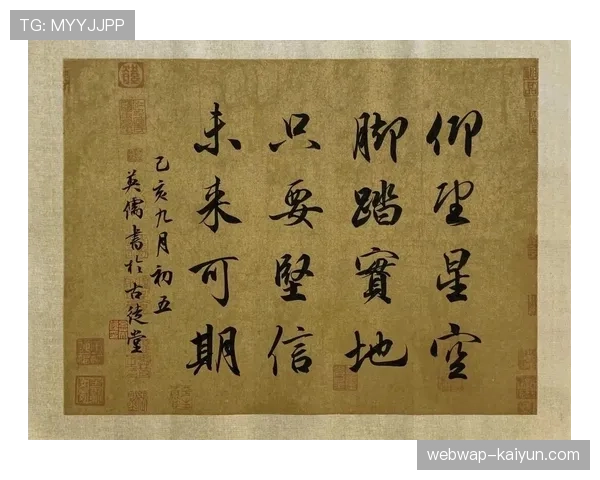 TG: MYYJJPP
仰望星空
脚踏實地
只要堅信
未来可期
乙亥九月初五
英儒書於古徒堂
webwap-kaiyun.com